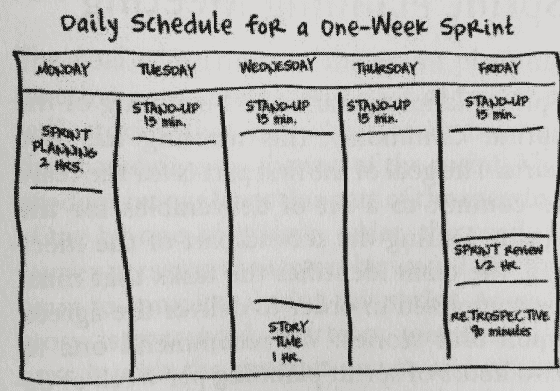 Daily Schedule for a One-Week Sprint
MONDAY TUESDAY WEDNESDAY THURSDAY FRIDAY
SPRINT
PLANNING
2 HRS.
STAND-UP
15 min.
STAND-UP
15 min.
STORY
TIME
1 HR.
STAND-UP
15 min.
STAND-UP
15 min.
SPRINT REVIEW
HR.
RETROSPECTIVE
90 minutes